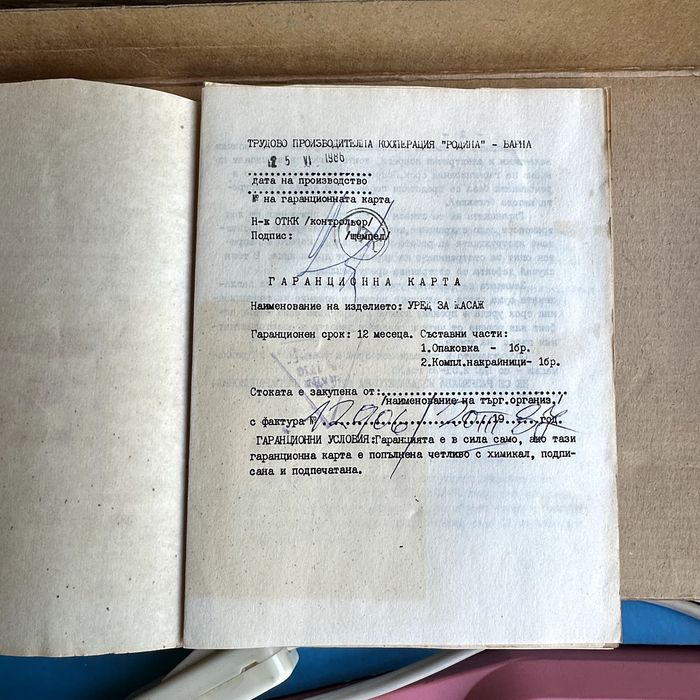 ТРУДОВО ПРОИЗВОДИТЕЛНА КООПЕРАЦИЯ "РОДИНА" - ВАРНА
25 VI 1986
дата на производство
№ на гаранционната карта
Н-к ОТКК /контрольор/
Подпис: /щемпел/
ГАРАНЦИОННА КАРТА
Наименование на изделието: УРЕД ЗА МАСАЖ
Гаранционен срок: 12 месеца. Съставни части:
1.Опаковка - 1бр.
2.Компл.накрайници- 1бр.
Стоката е закупена от:
/наименование на търг.организ./
с фактура № 19 год.
ГАРАНЦИОННИ УСЛОВИЯ:Гаранцията е в сила само, ако тази
гаранционна карта е попълнена четливо с химикал, подпи-
сана и подпечатана.